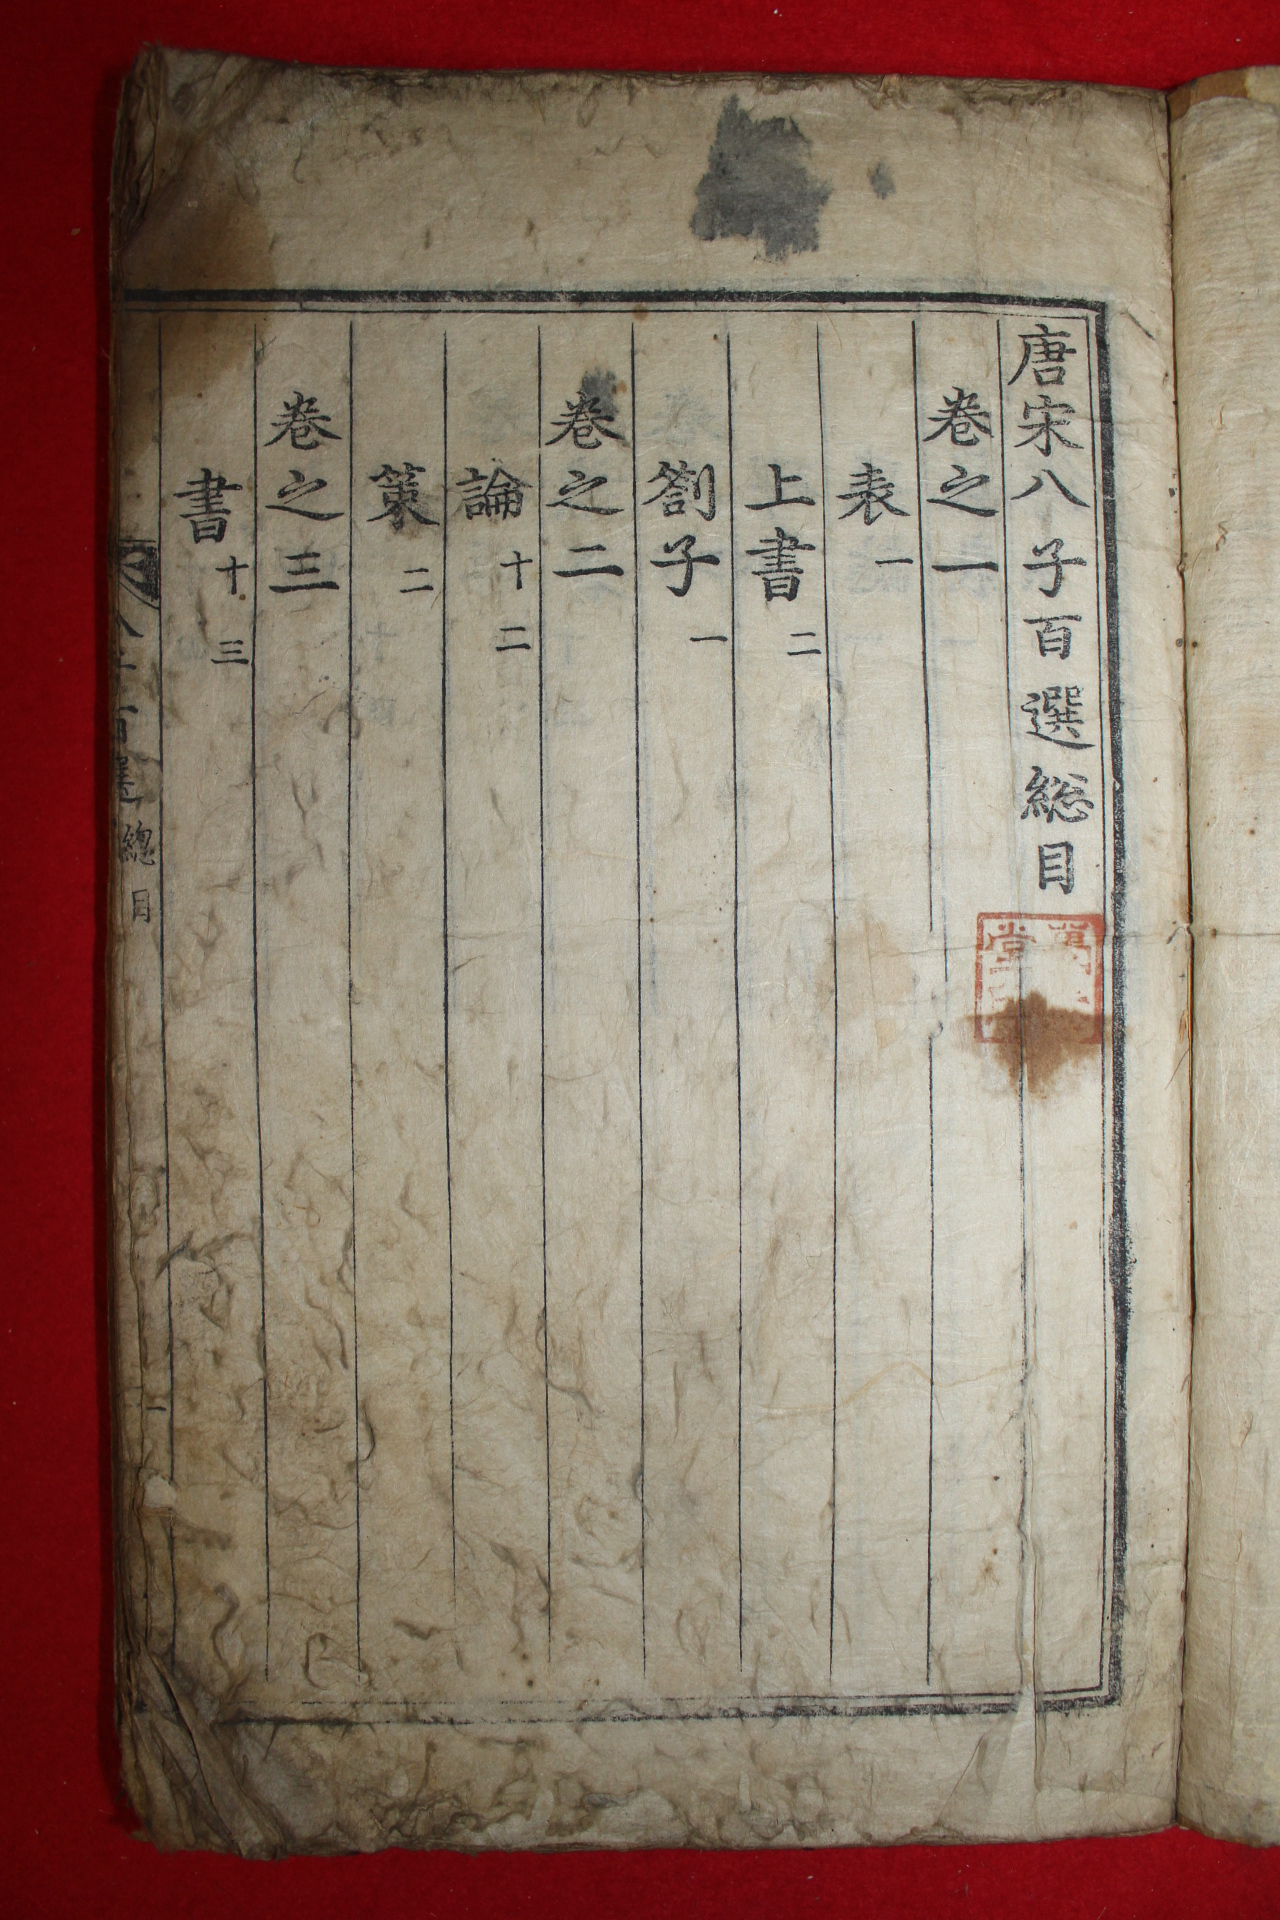 唐宋八子百選総目
卷之一
表一
上書二
劄子一
卷之二
論十二
策二
卷之三
書十三
八子百選 總目 一